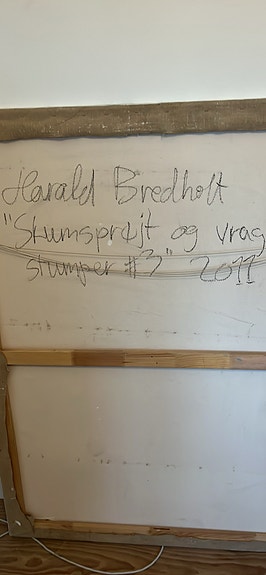 Harald Bredholt
"Skumsprøjt og vrag
stumper #3" 2011